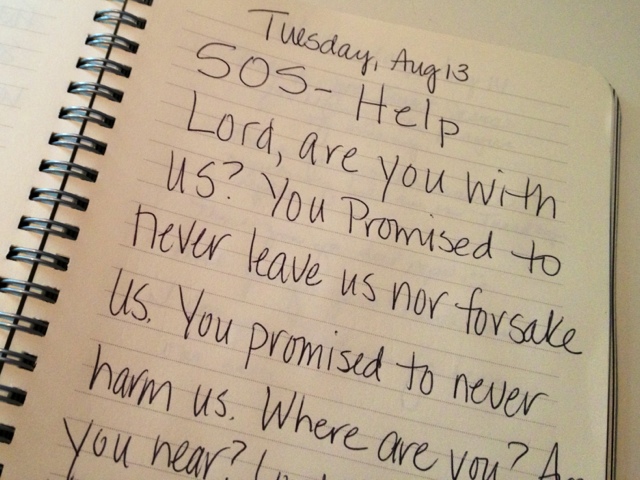 Tuesday, Aug 13
SOS- Help
Lord, are you with
us? You Promised to
never leave us nor forsake
us. You promised to never
harm us. Where are you?
you near?